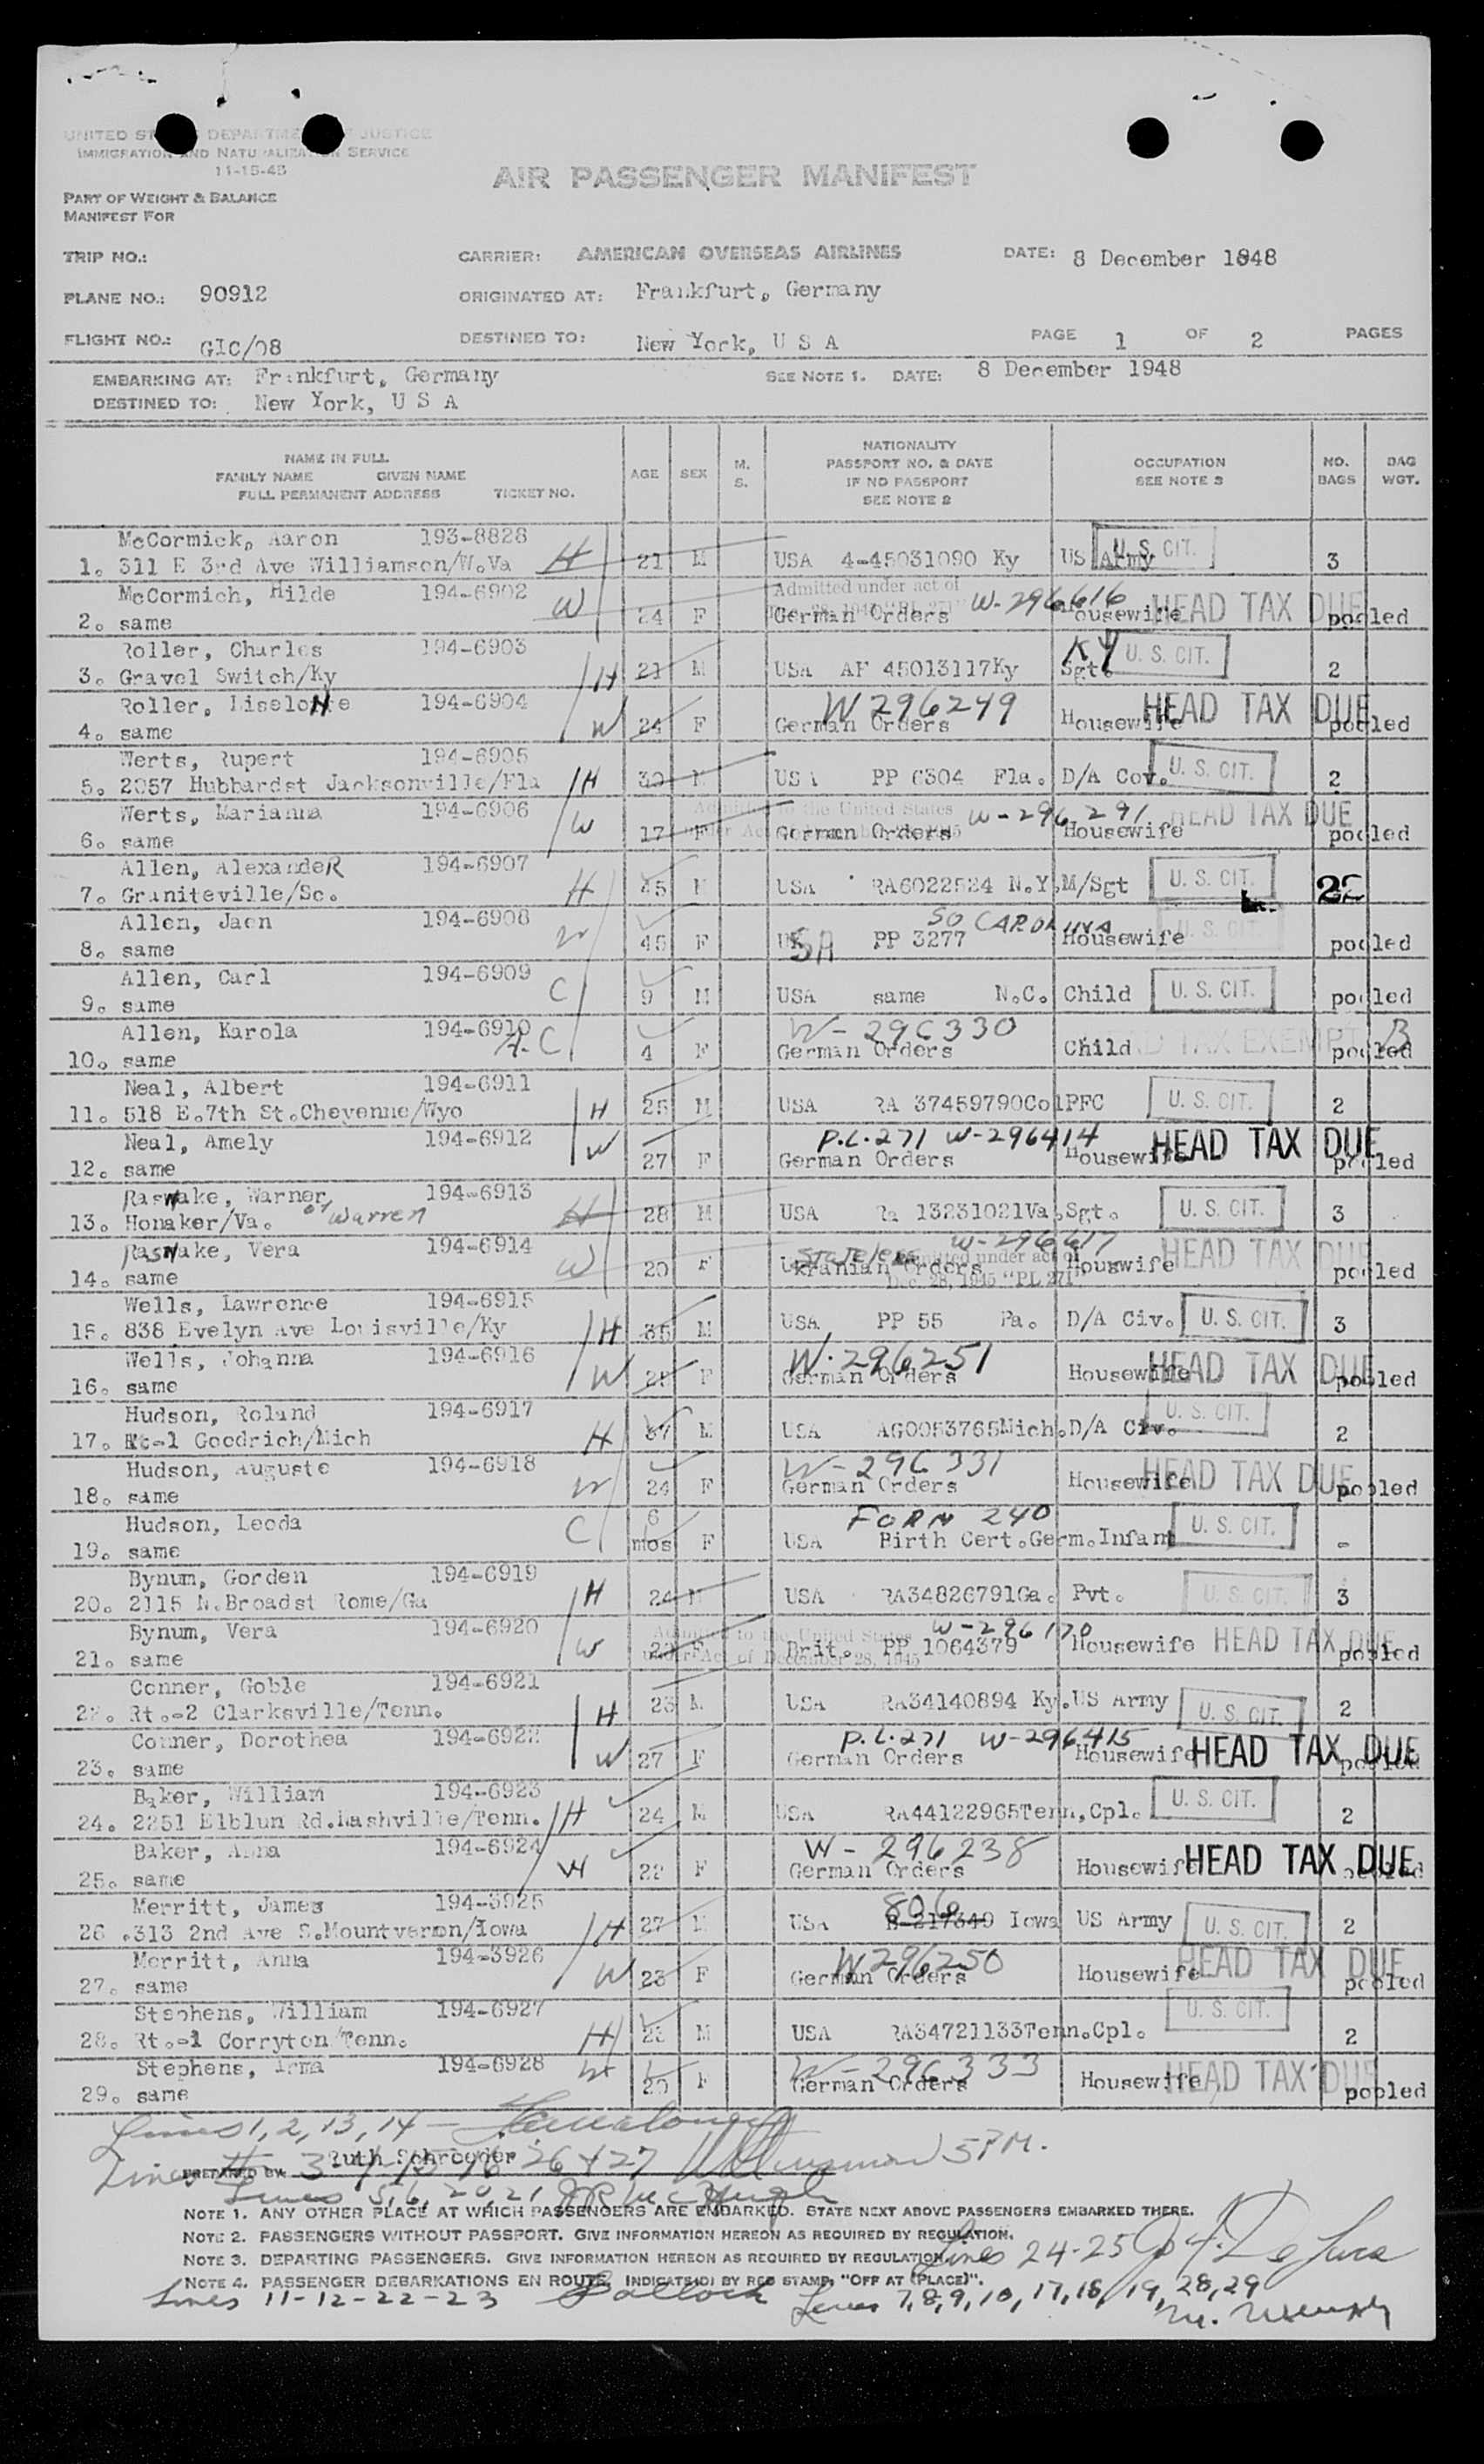 UNITED ST DEPARTME JUSTICE
IMMIGRATION AND NATURALIZATION SERVICE
11-15-45
AIR PASSENGER MANIFEST
PART OF WEIGHT & BALANCE
MANIFEST FOR
TRIP NO.: CARRIER: AMERICAN OVERSEAS AIRLINES DATE: 8 December 1948
PLANE NO.: 90912 ORIGINATED AT: Frankfurt, Germany
FLIGHT NO.: GIC/08 DESTINED TO: New York, U S A PAGE 1 OF 2 PAGES
EMBARKING AT: Frankfurt, Germany SEE NOTE 1. DATE: 8 December 1948
DESTINED TO: New York, U S A
NAME IN FULL
FAMILY NAME GIVEN NAME
FULL PERMANENT ADDRESS TICKET NO.
AGE SEX M. S.
NATIONALITY
PASSPORT NO. & DATE
IF NO PASSPORT
SEE NOTE 2
OCCUPATION
SEE NOTE 3
NO. BAGS
BAG WGT.
McCormick, Aaron 193-8828
1. 311 E 3rd Ave Williamson/W.Va H 21 M USA 4-45031090 Ky US Army U. S. CIT. 3
McCormich, Hilde 194-6902 W Admitted under act of W-296616
2. same 24 F German Orders Housewife HEAD TAX DUE pooled
Roller, Charles 194-6903 KY
3. Gravel Switch/Ky H 21 M USA AF 45013117Ky Sgt. U. S. CIT. 2
Roller, Liselotte 194-6904 W 296249
4. same W 24 F German Orders Housewife HEAD TAX DUE pooled
Werts, Rupert 194-6905
5. 2057 Hubbardst Jacksonville/Fla H 30 M USA PP 6304 Fla. D/A Cov. U. S. CIT. 2
Werts, Marianna 194-6906 W Admitted to the United States W-296,291
6. same 17 F German Orders Housewife HEAD TAX DUE pooled
Allen, AlexandeR 194-6907
7. Graniteville/Sc. H 45 M USA RA6022524 N.Y. M/Sgt U. S. CIT. 2
Allen, Jaen 194-6908 SO CAROLINA
8. same W 45 F USA PP 3277 Housewife U. S. CIT. pooled
Allen, Carl 194-6909
9. same C 9 M USA same N.C. Child U. S. CIT. pooled
Allen, Karola 194-6910 W-296330
10. same A.C 4 F German Orders Child HEAD TAX EXEMPT B pooled
Neal, Albert 194-6911
11. 518 E.7th St.Cheyenne/Wyo H 25 M USA RA 37459790Col PFC U. S. CIT. 2
Neal, Amely 194-6912 P.L.271 W-296414
12. same W 27 F German Orders Housewife HEAD TAX DUE pooled
Rasnake, Warner 194-6913 or Warren
13. Honaker/Va. H 28 M USA Ra 13231021Va. Sgt. U. S. CIT. 3
Rasnake, Vera 194-6914 Stateless W-296617
14. same W 20 F Ukranian Orders Admitted under act of Dec. 28, 1945 "PL 271" Houswife HEAD TAX DUE pooled
Wells, Lawrence 194-6915
15. 838 Evelyn Ave Louisville/Ky H 35 M USA PP 55 Pa. D/A Civ. U. S. CIT. 3
Wells, Johanna 194-6916 W.296251
16. same W F German Orders Housewife HEAD TAX DUE pooled
Hudson, Roland 194-6917
17. Rt-1 Goodrich/Mich H 37 M USA AG0053765Mich. D/A Civ. U. S. CIT. 2
Hudson, Auguste 194-6918 W-296331
18. same W 24 F German Orders Housewife HEAD TAX DUE pooled
Hudson, Leoda FORM 240
19. same C 6 mos F USA Birth Cert.Germ. Infant U. S. CIT. -
Bynum, Gorden 194-6919
20. 2115 N.Broadst Rome/Ga H 24 M USA RA34826791Ga. Pvt. U. S. CIT. 3
Bynum, Vera 194-6920 Admitted to the United States W-296170
21. same W F Brit. PP 1064379 under Act of December 28, 1945 Housewife HEAD TAX DUE pooled
Conner, Goble 194-6921
22. Rt.-2 Clarksville/Tenn. H 23 M USA RA34140894 Ky. US Army U. S. CIT. 2
Conner, Dorothea 194-6922 P.L.271 W-296415
23. same W 27 F German Orders Housewife HEAD TAX DUE pooled
Baker, William 194-6923
24. 2251 Elblun Rd.Nashville/Tenn. H 24 M USA RA44122965Tenn, Cpl. U. S. CIT. 2
Baker, Anna 194-6924 W-296238
25. same W 22 F German Orders Housewife HEAD TAX DUE pooled
Merritt, James 194-3925 806
26. 313 2nd Ave S.Mountvernon/Iowa H 27 M USA B-217340 Iowa US Army U. S. CIT. 2
Merritt, Anna 194-3926 W296250
27. same W 23 F German Orders Housewife HEAD TAX DUE pooled
Stephens, William 194-6927
28. Rt.-1 Corryton/Tenn. H 23 M USA RA34721133Tenn. Cpl. U. S. CIT. 2
Stephens, Irma 194-6928 W-296333
29. same W 20 F German Orders Housewife HEAD TAX DUE pooled
Lines 1, 2, 13, 14 -
PREPARED BY Ruth Schroeder
Lines 3-4-15-16-26 & 27 5 PM.
Lines 5, 6, 20, 21 J R McHugh
NOTE 1. ANY OTHER PLACE AT WHICH PASSENGERS ARE EMBARKED. STATE NEXT ABOVE PASSENGERS EMBARKED THERE.
NOTE 2. PASSENGERS WITHOUT PASSPORT. GIVE INFORMATION HEREON AS REQUIRED BY REGULATION.
NOTE 3. DEPARTING PASSENGERS. GIVE INFORMATION HEREON AS REQUIRED BY REGULATION.
Lines 24-25
NOTE 4. PASSENGER DEBARKATIONS EN ROUTE. INDICATE(D) BY RED STAMP, "OFF AT (PLACE)".
Lines 11-12-22-23
Lines 7, 8, 9, 10, 17, 18, 19, 28, 29